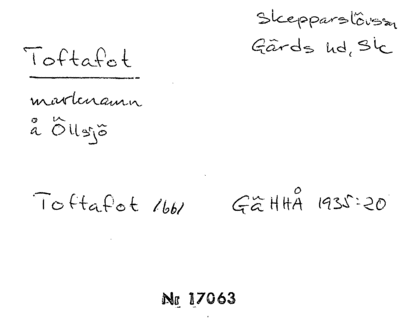 Skepparslövs sn
Gärds hd, Sk
Toftafot
marknamn
å Öllsjö
Toftafot /bb/ GäHHÅ 1935:20
Nr 17063